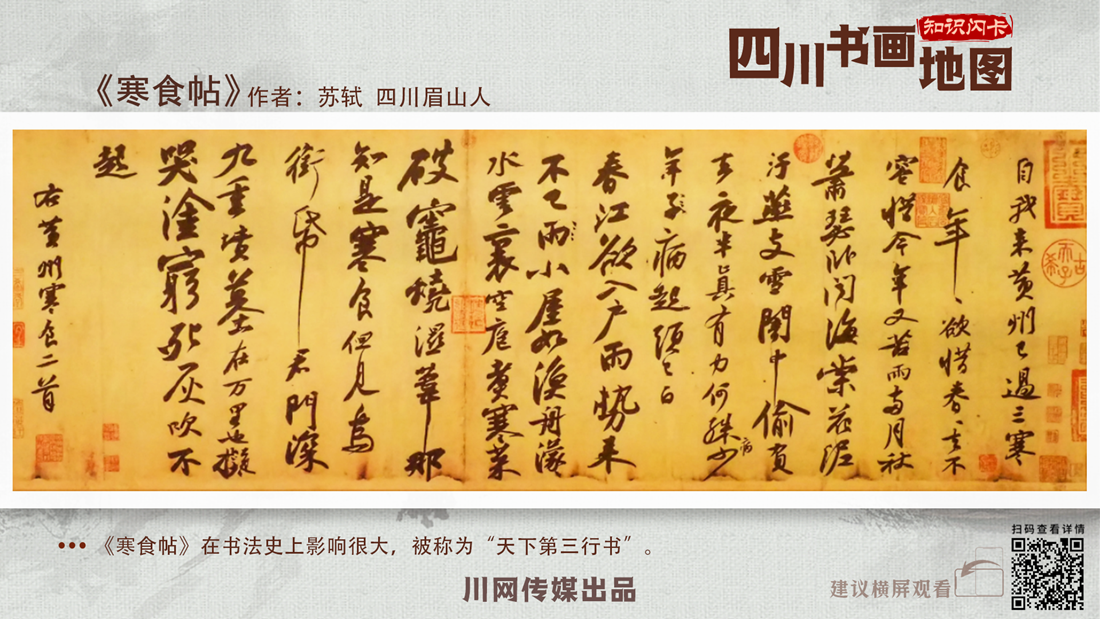 四川书画地图
知识闪卡
《寒食帖》作者：苏轼 四川眉山人
自我来黄州已過三寒
食年〻欲惜春〻去不
容惜今年又苦雨兩月秋
蕭瑟卧聞海棠花泥
汙燕支雪闇中偷負
去夜半真有力何殊少
病
年子病起須已白
春江欲入户雨勢来
不已雨小屋如漁舟濛
水雲裏空庖煑寒菜
破竈燒濕葦那
知是寒食但見烏
銜帋君門深
九重墳墓在万里也擬
哭塗窮死灰吹不
起
右黄州寒食二首
••• 《寒食帖》在书法史上影响很大，被称为“天下第三行书”。
川网传媒出品
建议横屏观看
扫码查看详情